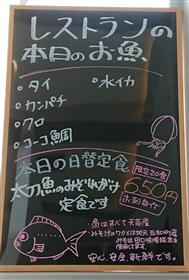 レストランの
本日のお魚
・タイ ・水イカ
・カンパチ
・クロ
・コーコ鯛
本日の日替定食
太刀魚のみぞれがけ
定食です
限定20食
650円
お刺身付
魚はすべて天草産
安心、安全、新鮮です